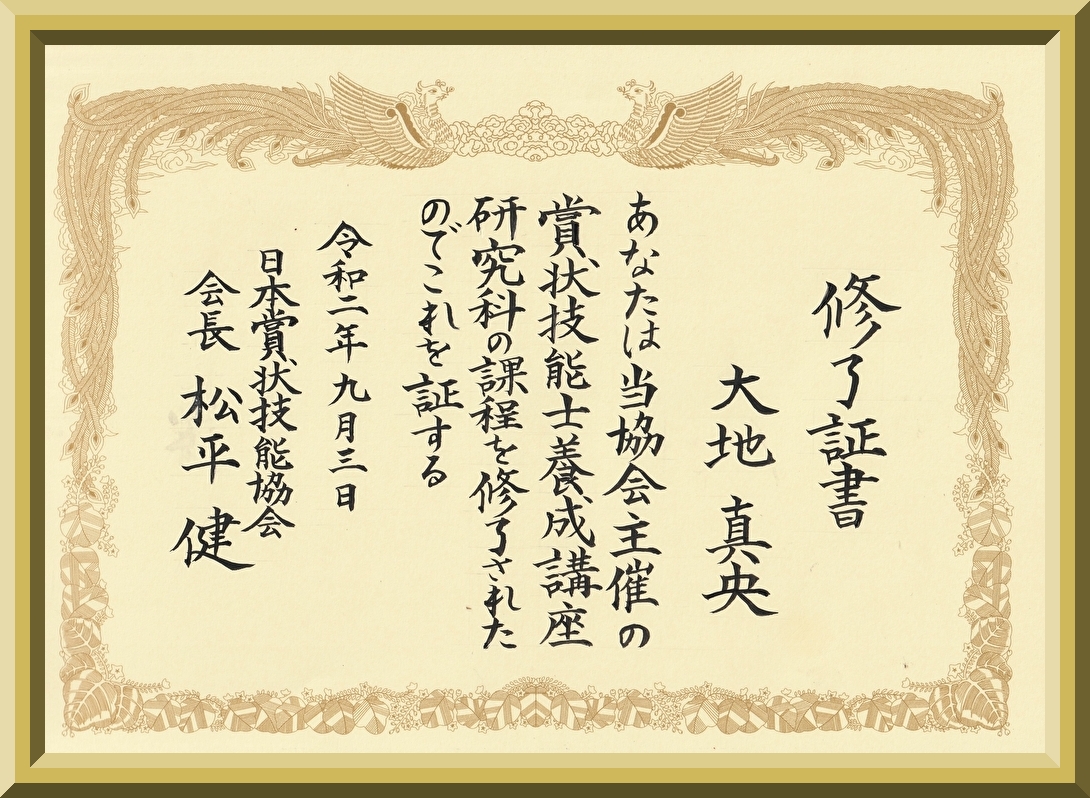 修了証書
大地 真央
あなたは当協会主催の
賞状技能士養成講座
研究科の課程を修了された
のでこれを証する
令和二年九月三日
日本賞状技能協会
会長 松平 健